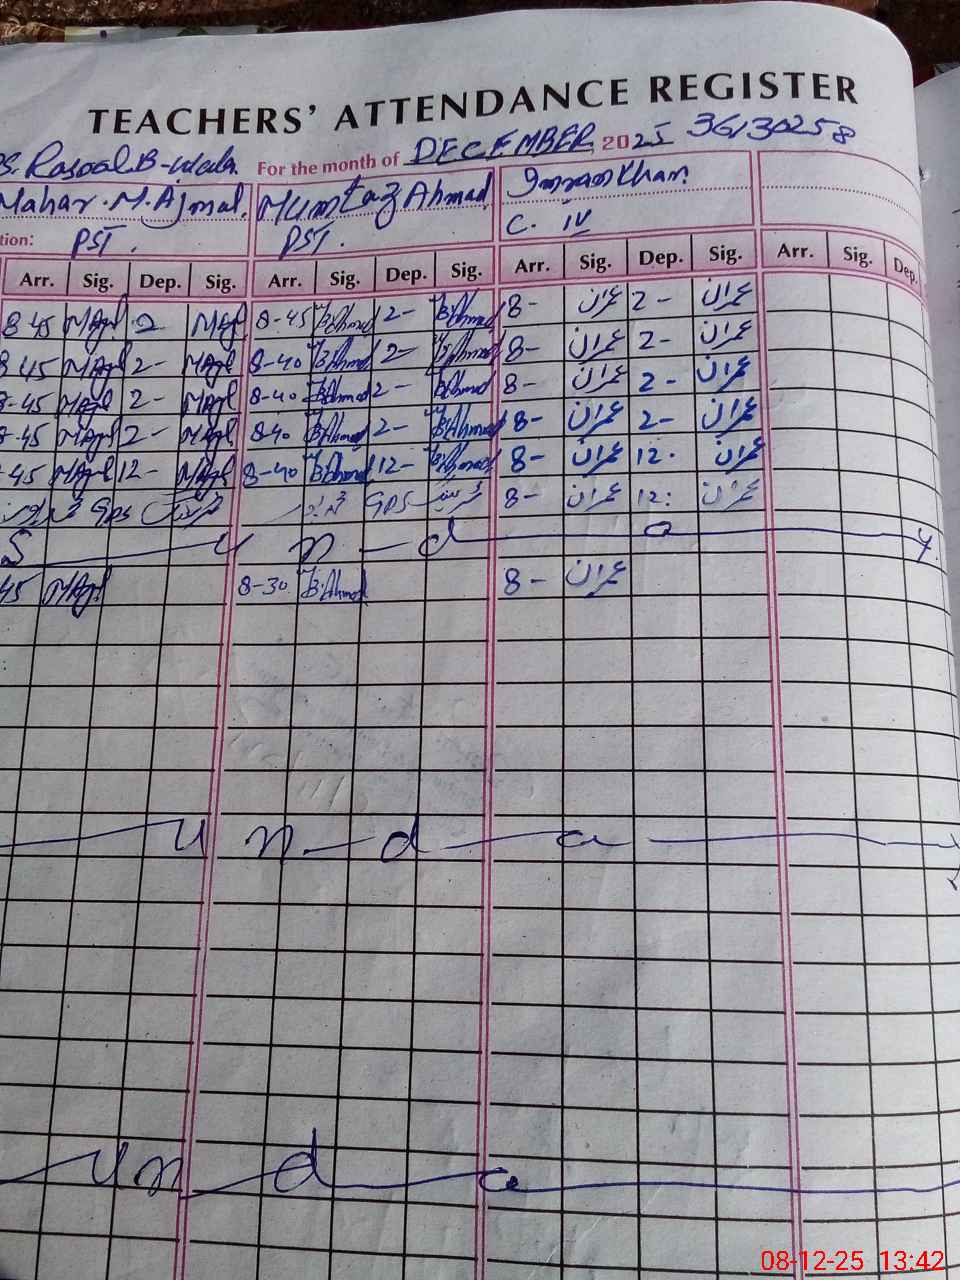 TEACHERS' ATTENDANCE REGISTER
S. Rasool B-wala. For the month of DECEMBER, 2025 36130258
Mahar. M. Ajmal. Mumtaz Ahmad Imran Khan
tion: PST. PST. C. IV
Arr. Sig. Dep. Sig. Arr. Sig. Dep. Sig. Arr. Sig. Dep. Sig. Arr. Sig. Dep.
8 45 MAjl 2 MAjl 8-45 B.Ahmad 2- B.Ahmad 8- عمران 2- عمران
8 45 MAjl 2- MAjl 8-40 B.Ahmad 2- B.Ahmad 8- عمران 2- عمران
8-45 MAjl 2- MAjl 8-40 B.Ahmad 2- B.Ahmad 8- عمران 2- عمران
8-45 MAjl 2- MAjl 8-40 B.Ahmad 2- B.Ahmad 8- عمران 2- عمران
-45 MAjl 12- MAjl 8-40 B.Ahmad 12- B.Ahmad 8- عمران 12. عمران
GPS GPS 8- عمران 12: عمران
S u n d a y.
45 MAjl 8-30 B.Ahmad 8- عمران
u n d a y
u n d a
08-12-25 13:42